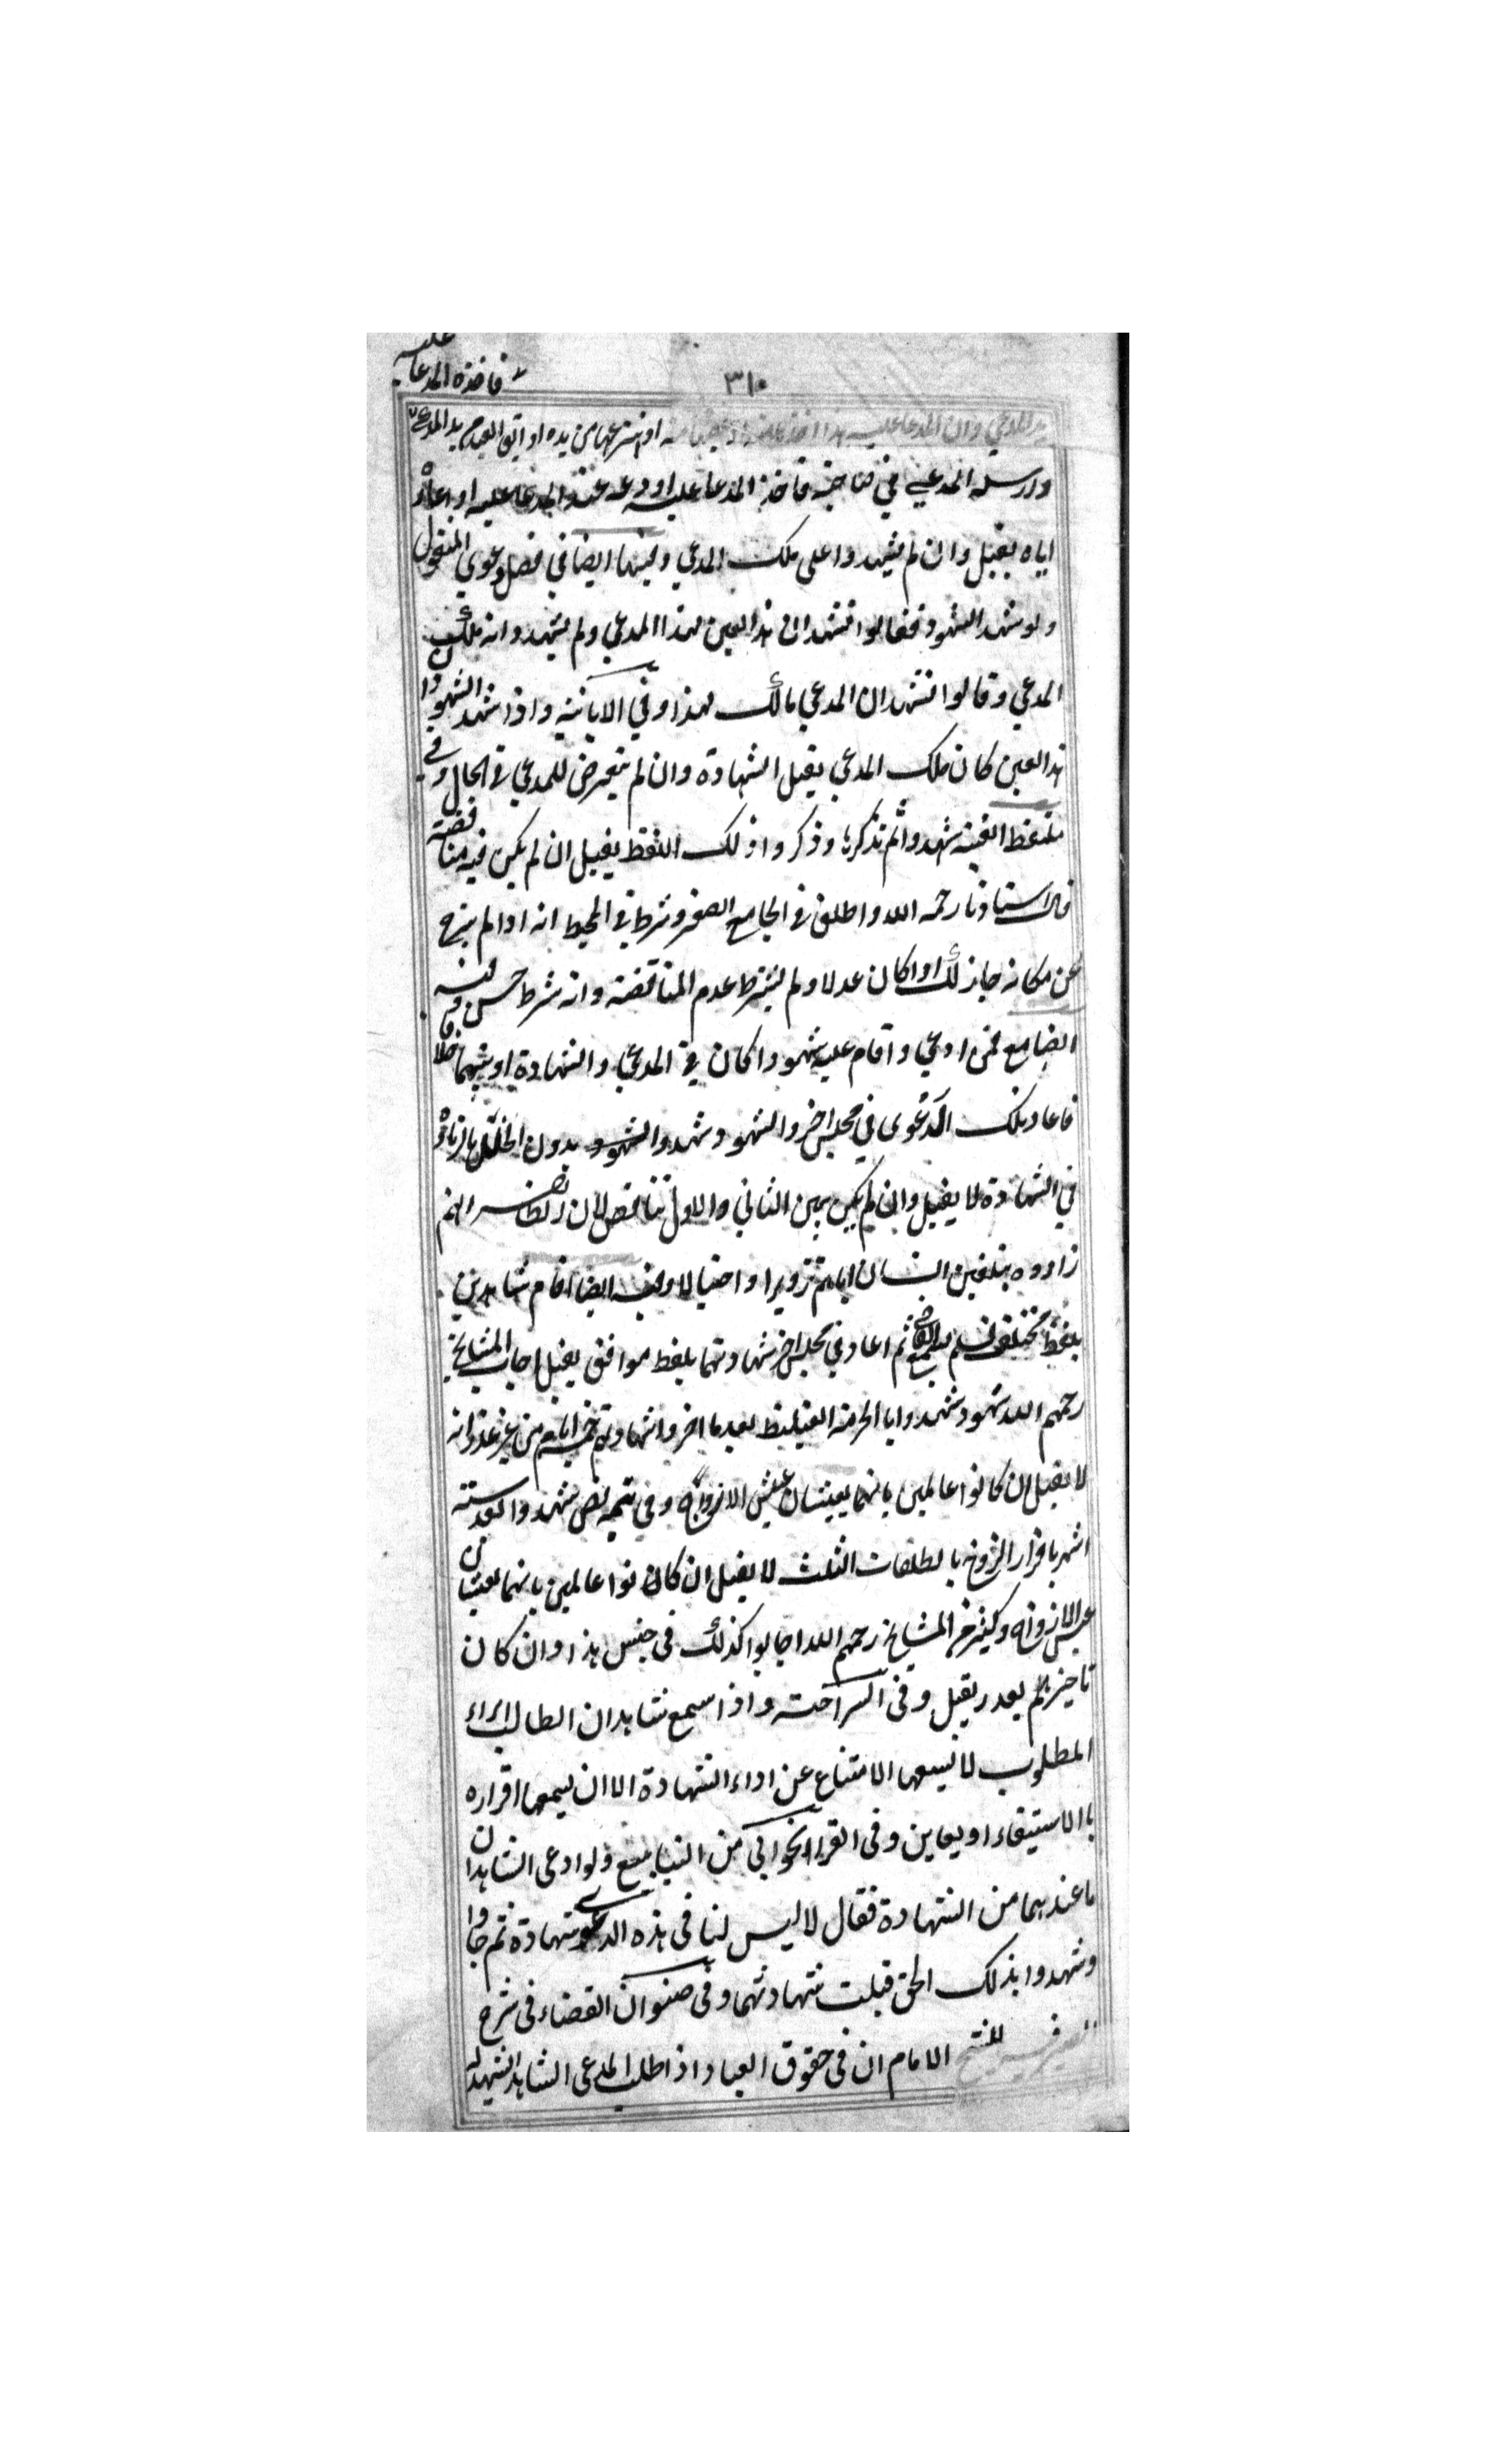 عليه
فاخذه المدعا
٣١٠
يد المدعي وان المدعا عليه هذا اخذ منه او غصبا منه او انتزعها من يده او ابق العبد من يد المدعي
وارسله المدعي في حاجة فاخذ المدعا عليه اودعه عند المدعا عليه او اعاره
اياه يقبل وان لم يشهدوا على ملك المدعي وفيها ايضا في فصل دعوي المنقول
ولو شهد الشهود فقالوا نشهد ان هذا العين لهذا المدعي ولم يشهدوا انه ملك
المدعي وقالوا نشهد ان المدعي مالك لهذا وفي الاكانية واذا شهد الشهود ان
هذا العين كان ملك المدعي يقبل الشهادة وان لم يتعرض للمدعي في الحال وفي
ملتقط القنية شهدوا ثم تذكر بها وذكروا ذلك اللفظ يقبل ان لم يكن فيه مناقضة
قال استادنا رحمه الله واطلق في الجامع الصغر وشرط في المحيط انه اذا لم يبرح
عن مكانه جاز ذلك اذا كان عدلا ولم يشترط عدم المناقضة وانه شرط حسن وفيه
ايضا مع فمن ادعي واقام عليه شهودا كان في المدعي والشهادة او شبهها خللا
فاعاد تلك الدعوى في مجلس اخر والشهود شهدوا الشهود بدون الخلل بازيادة
في الشهادة لا يقبل وان لم يكن بين الثاني والاول تناقض لان الظاهر انهم
زادوه بتلقين انسان اياهم تزويرا واحتيالا وفيه ايضا اقام شاهدين
بلفظ مختلف فلم يسمع القاضي ثم اعاد في مجلس اخر شهادتهما بلفظ موافق يقبل اجاب المشايخ
رحمهم الله شهود شهدوا بالحرمة الغليظة بعد ما اخروا شهادته خمسة ايام من غير عذر انه
لا يقبل ان كانوا عالمين بانهما يعيشان عيش الازواج وفي تتمة نص شهدوا بعد ستة
اشهر باقرار الزوج بالطلقات الثلث لا يقبل ان كان نوا عالمين بانهما يعيشان
عيش الازواج وكثير من المشايخ رحمهم الله اجابوا كذلك في جنس هذا وان كان
تاخيرهم بعذر يقبل وفي السراجية واذا سمع شاهدان الطالب ابراء
المطلوب لا يسعهما الامتناع عن اداء الشهادة الا ان يسمعها اقراره
با الاستيفاء او يعاين وفي القراخواني من الينابيع ولو ادعى الشاهدان
ما عندهما من الشهادة فقال لا ليس لنا في هذه الدعوى شهادة ثم جاوا
وشهدوا بذلك الحق قبلت شهادتهما وفي صنوان القضاء في شرح
للشيخ الامام ان في حقوق العباد اذا طلب المدعى الشاهد ليشهد له